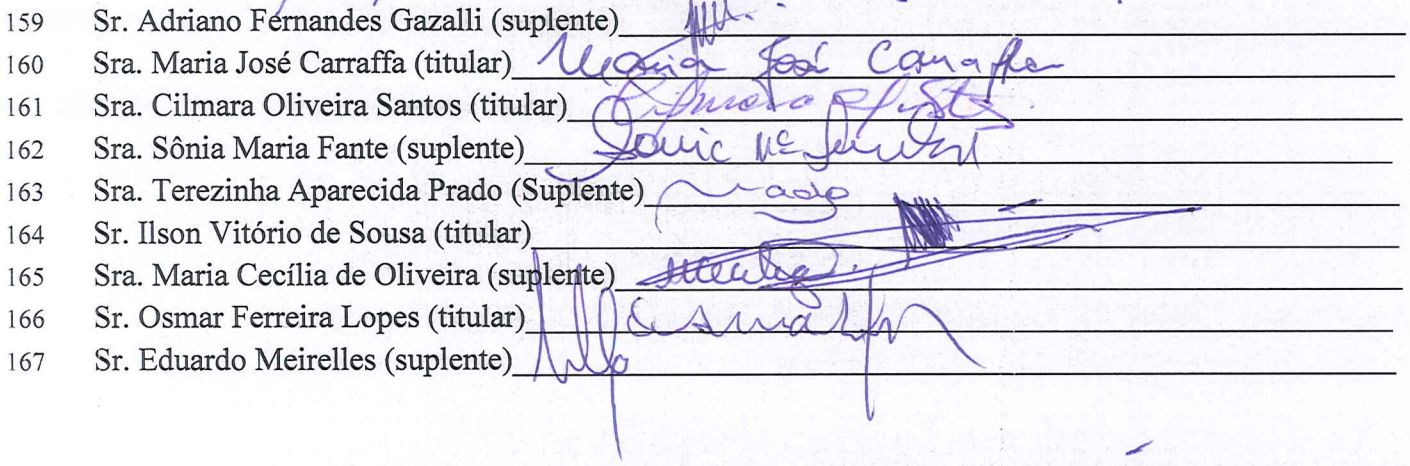 159 Sr. Adriano Fernandes Gazalli (suplente)
160 Sra. Maria José Carraffa (titular) Maria José Carraffa
161 Sra. Cilmara Oliveira Santos (titular)
162 Sra. Sônia Maria Fante (suplente) Sonia
163 Sra. Terezinha Aparecida Prado (Suplente)
164 Sr. Ilson Vitório de Sousa (titular)
165 Sra. Maria Cecília de Oliveira (suplente)
166 Sr. Osmar Ferreira Lopes (titular)
167 Sr. Eduardo Meirelles (suplente)